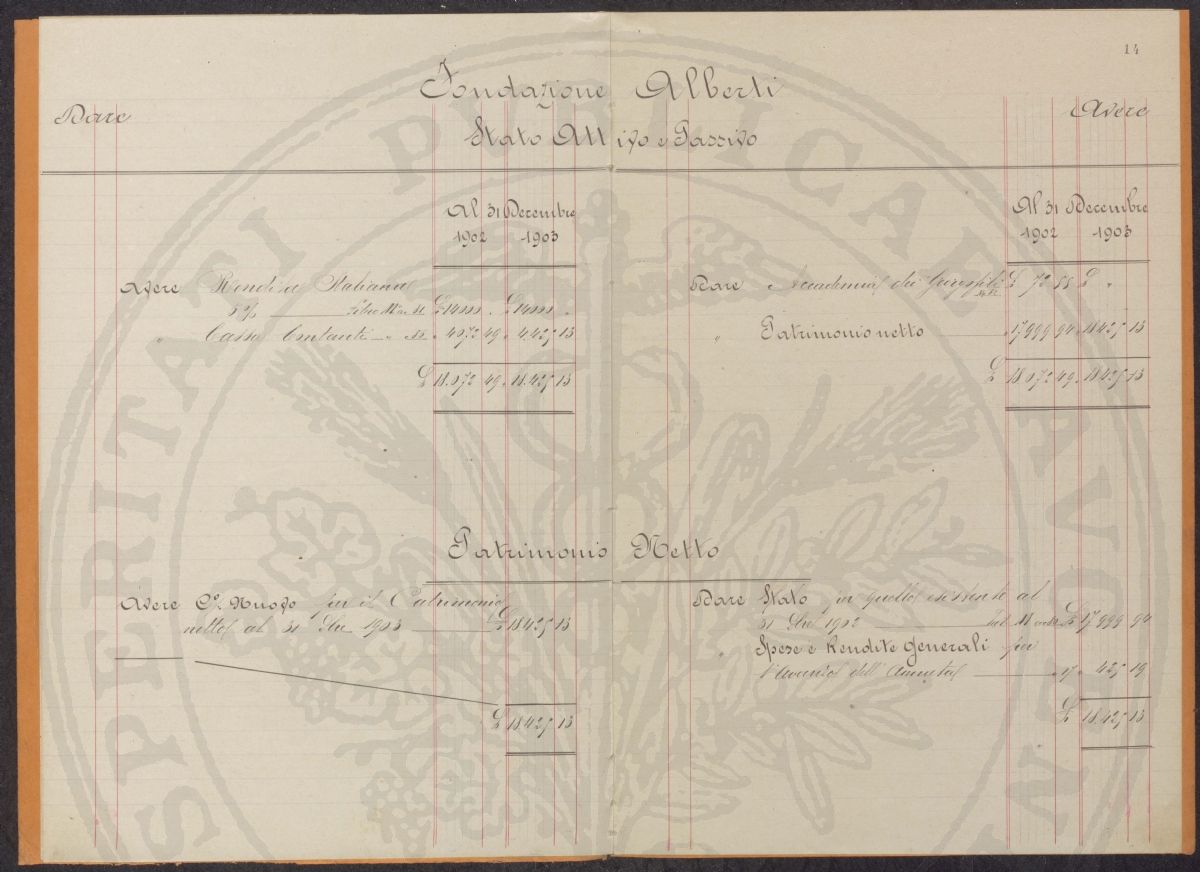 14
Fondazione Alberti
Dare Avere
Stato Attivo e Passivo
Al 31 Decembre
1902 1903
Avere Rendita Italiana
5% Libro Ma. £ 14000 . £ 14000 .
" Cassa Contanti " . 4072 49 . 4,425 13
£ 18.072 49 . 18.425 13
Al 31 Decembre
1902 1903
Dare a Accademia dei Georgofili £ 72 55 £ "
" Patrimonio netto . 17,999 94 . 18425 13
£ 18072 49 . 18425 13
Patrimonio Netto
Avere Co. Nuovo per il Patrimonio
netto al 31 Dbe 1903 £ 18425 13
£ 18,425 13
Dare Stato per quello esistente al
31 Dbe 1902 £ 17,999 94
" Spese e Rendite Generali per
l'Avanzo dell'Annata . 425 19
£ 18,425 13